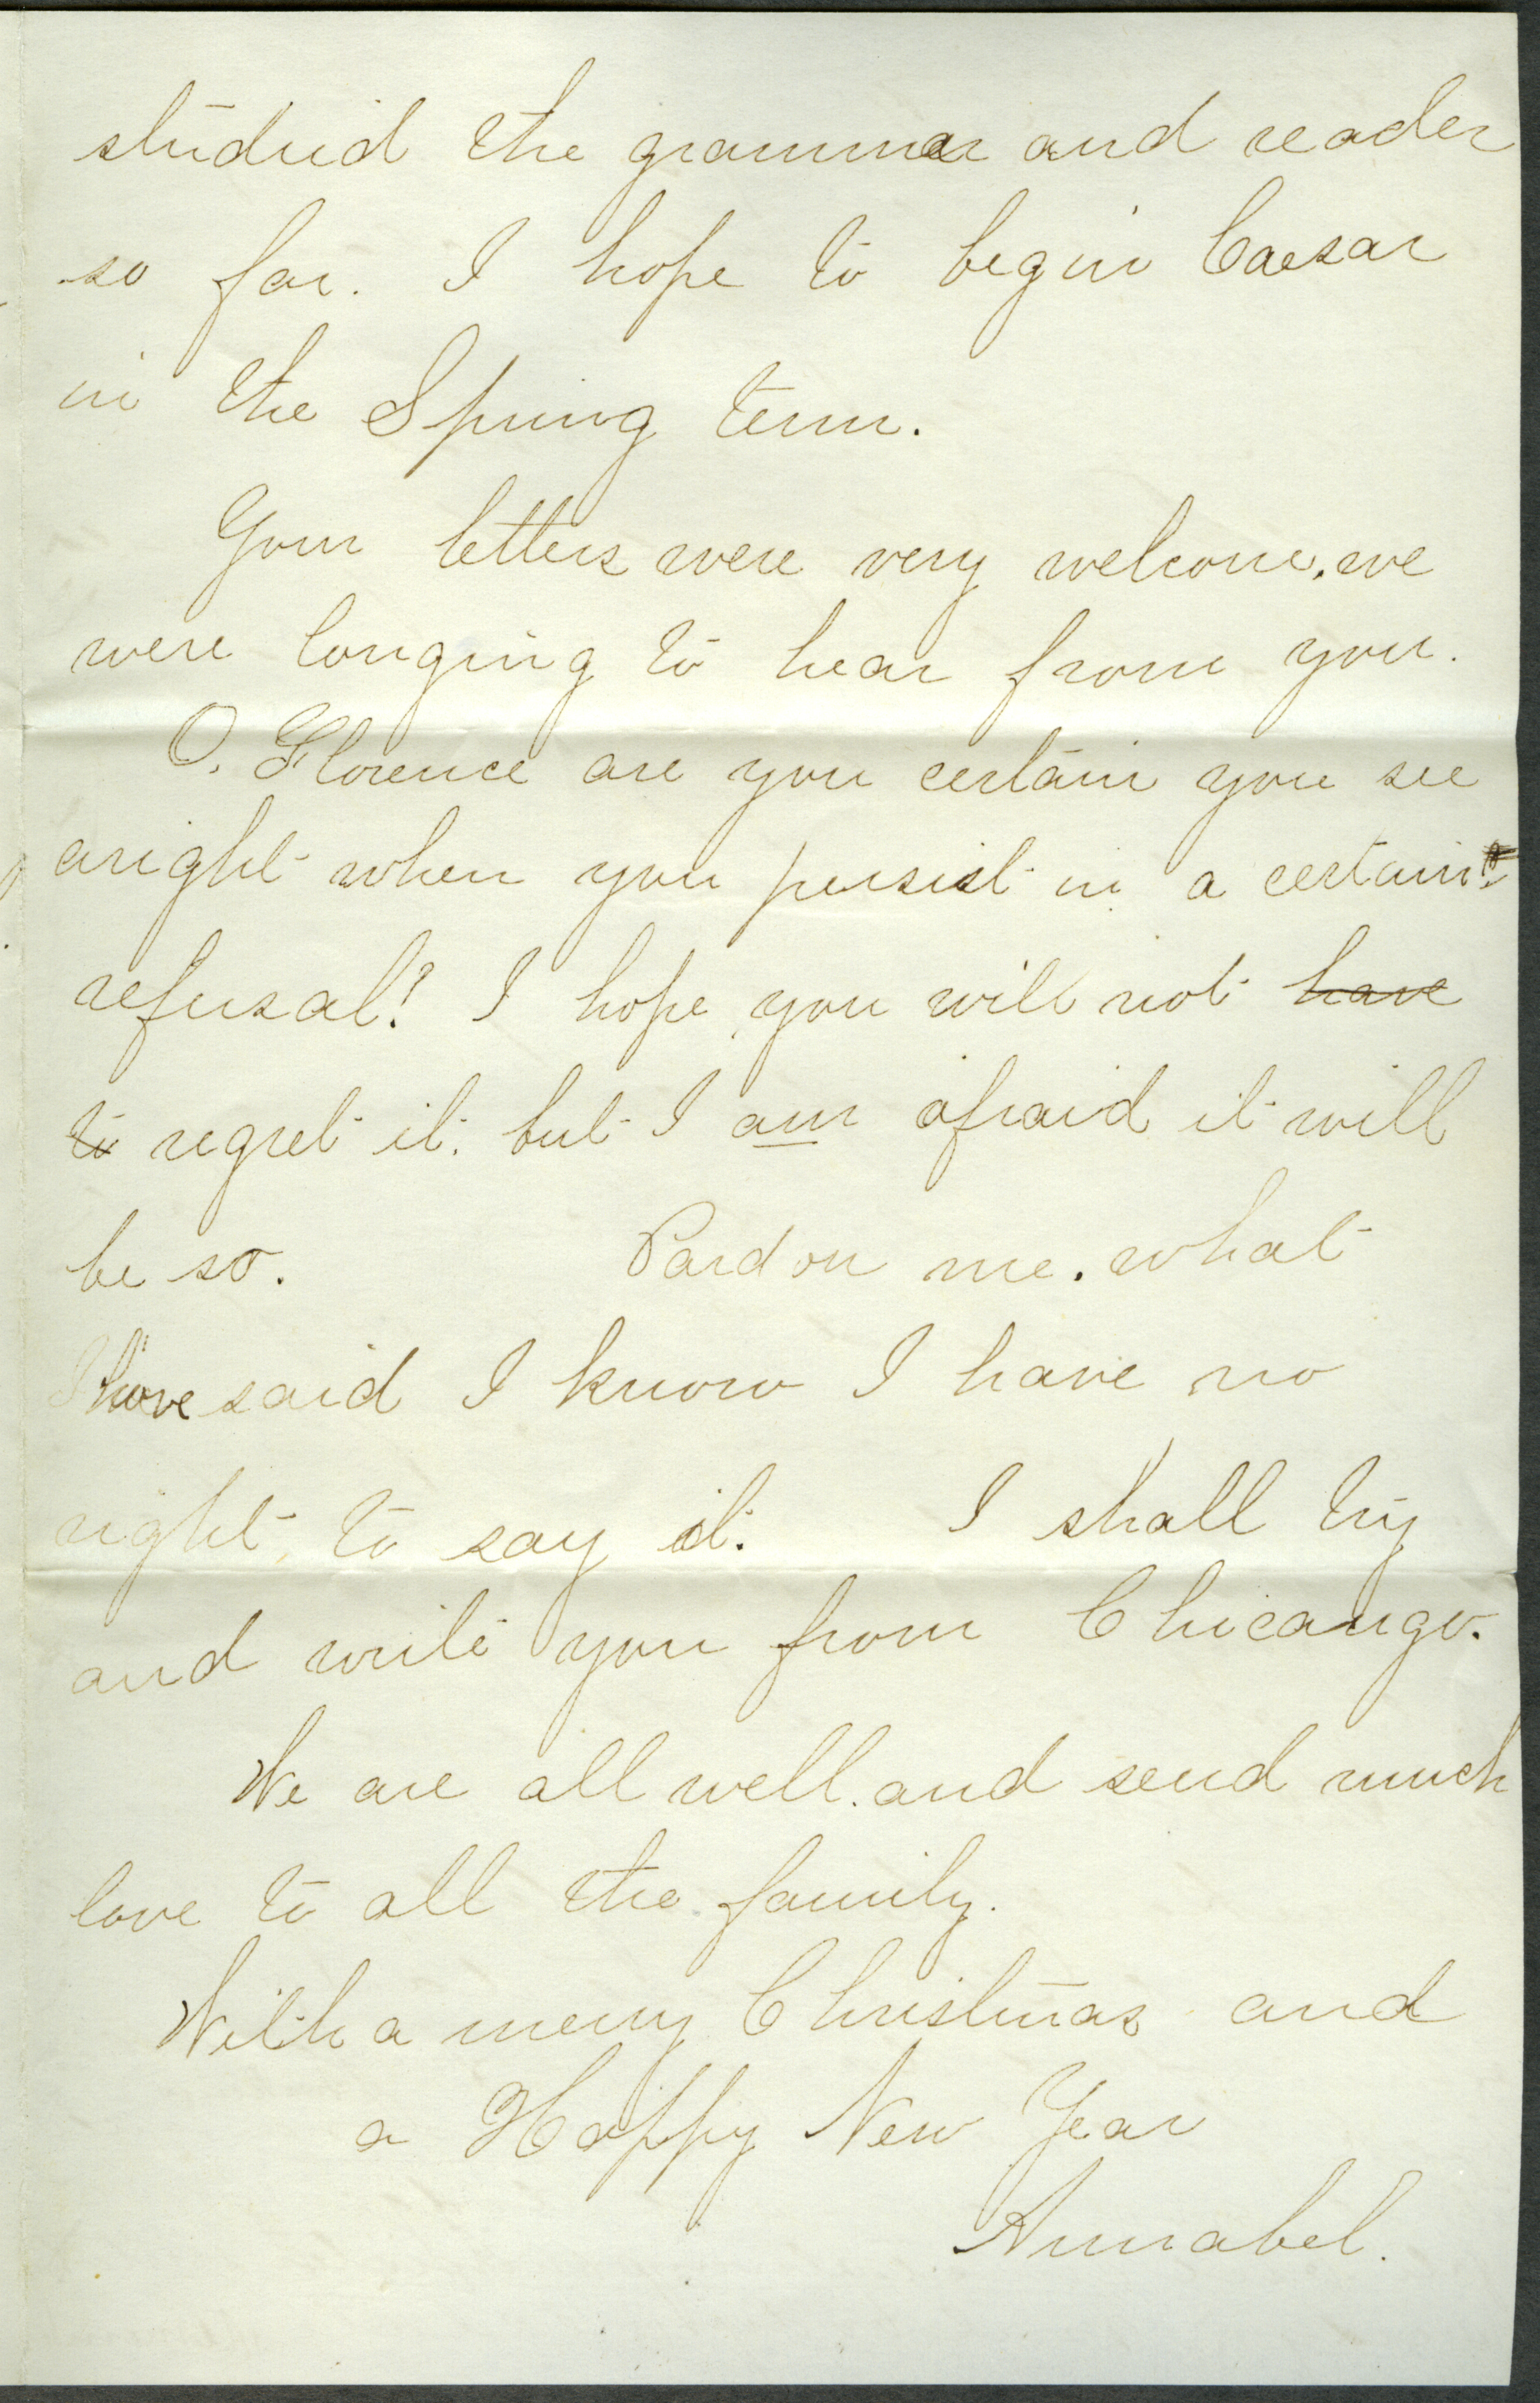 studied the grammar and reader
so far. I hope to begin Caesar
in the Spring term.
Your letters were very welcome, we
were longing to hear from you.
O, Florence are you certain you see
aright when you persist in a certain
refusal? I hope you will not have
to regret it, but I am afraid it will
be so. Pardon me, what
I have said I know I have no
right to say it. I shall try
and write you from Chicango.
We are all well, and send much
love to all the family.
With a merry Christmas and
a Happy New Year
Annabel.